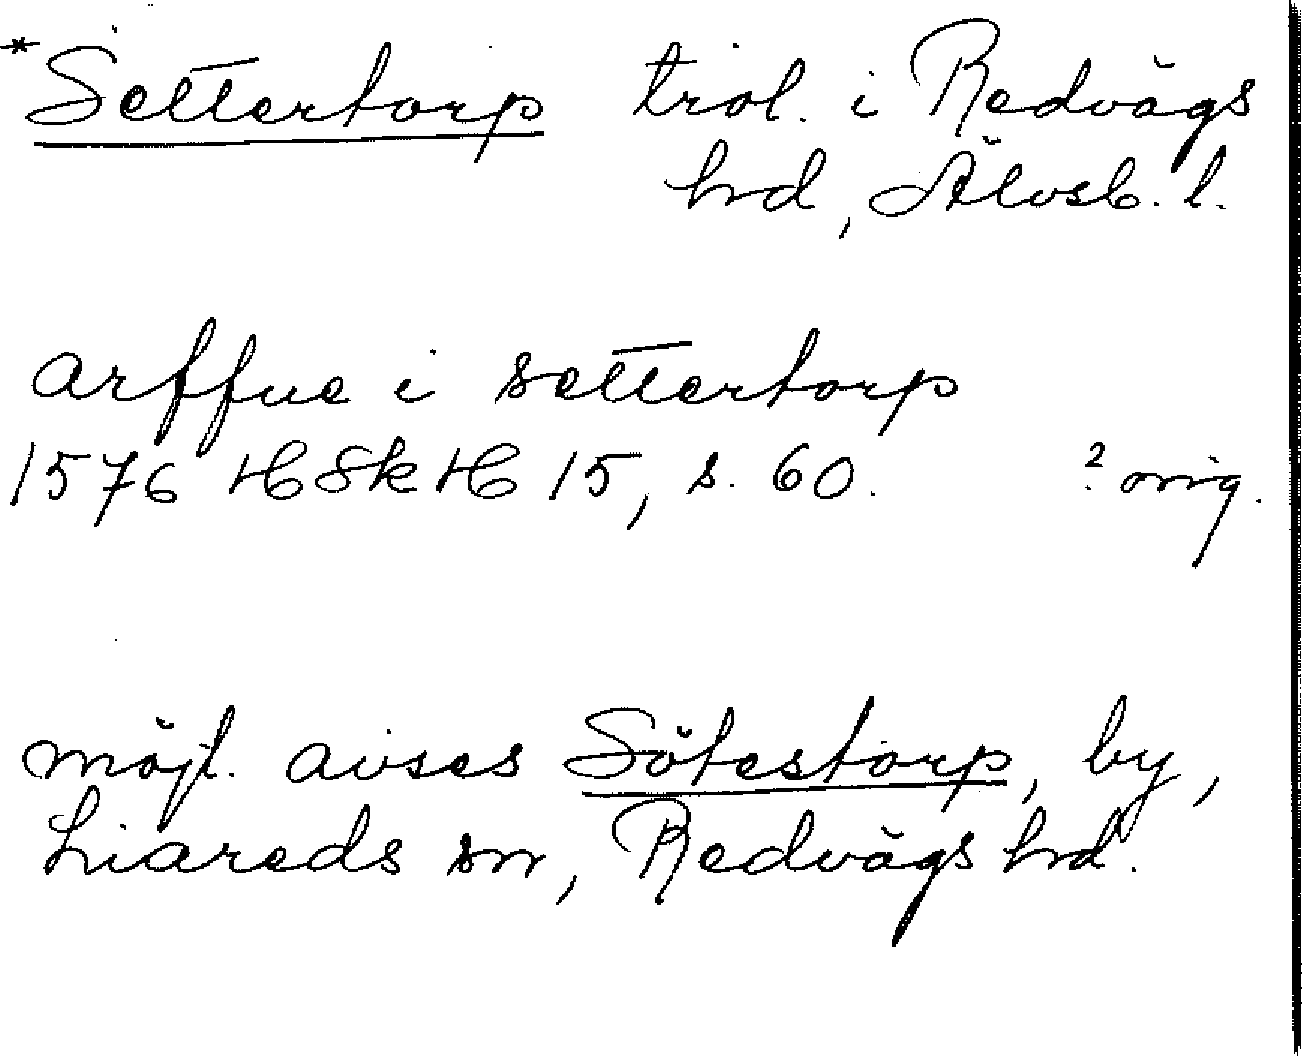 *Settertorp trol. i Redvägs
hrd, Älvsb. l.
arffue i settertorp
1576 HSkH 15, s. 60. ? orig.
möjl. avses Sötestorp, by,
Liareds sn, Redvägs hrd.